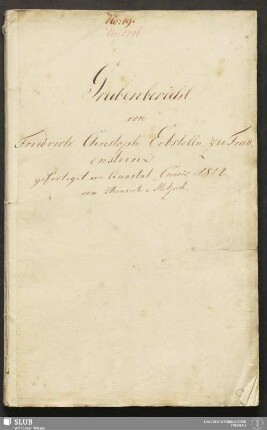 No. 19.
Grubenbericht
von
Friedrich Christoph Erbstolln zu Frau
enstein
gefertiget im Quartal Crucis 1812.
von
SLUB
Wir führen Wissen.